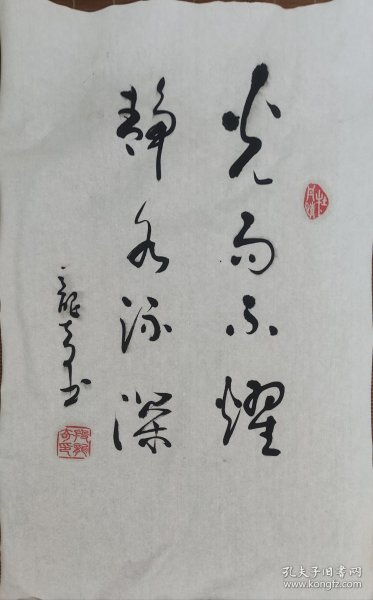 光而不耀
静水流深
龍奇书
孔夫子旧书网
www.kongfz.com